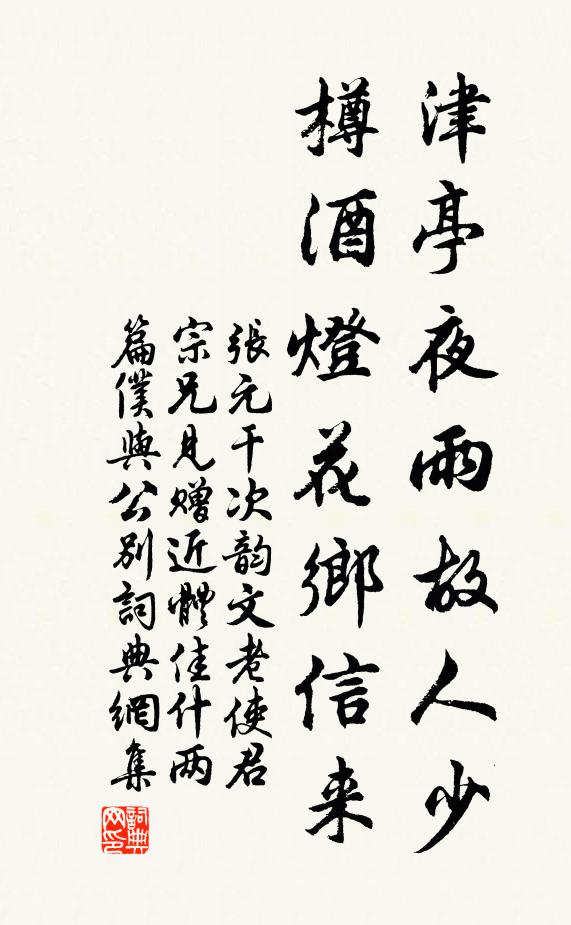 津亭夜雨故人少
樽酒燈花鄉信来
張元干次韵文老使君
宗兄見赠近體佳什两
篇僕與公别詞典網集
詞典
网印